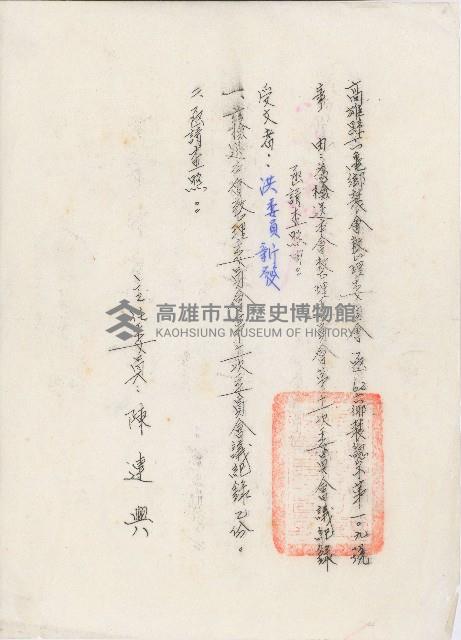 高雄縣六龜鄉農會整理委員會 函 62六鄉農總字第一〇九號
事由：為檢送本會整理委員會第十次委員會議紀錄
函請查照由。
受文者：洪委員新發
一、茲檢送本會整理委員會第十次委員會議紀錄乙份。
二、函請查照。
主任委員：陳連興
高雄市立歷史博物館
KAOHSIUNG MUSEUM OF HISTORY